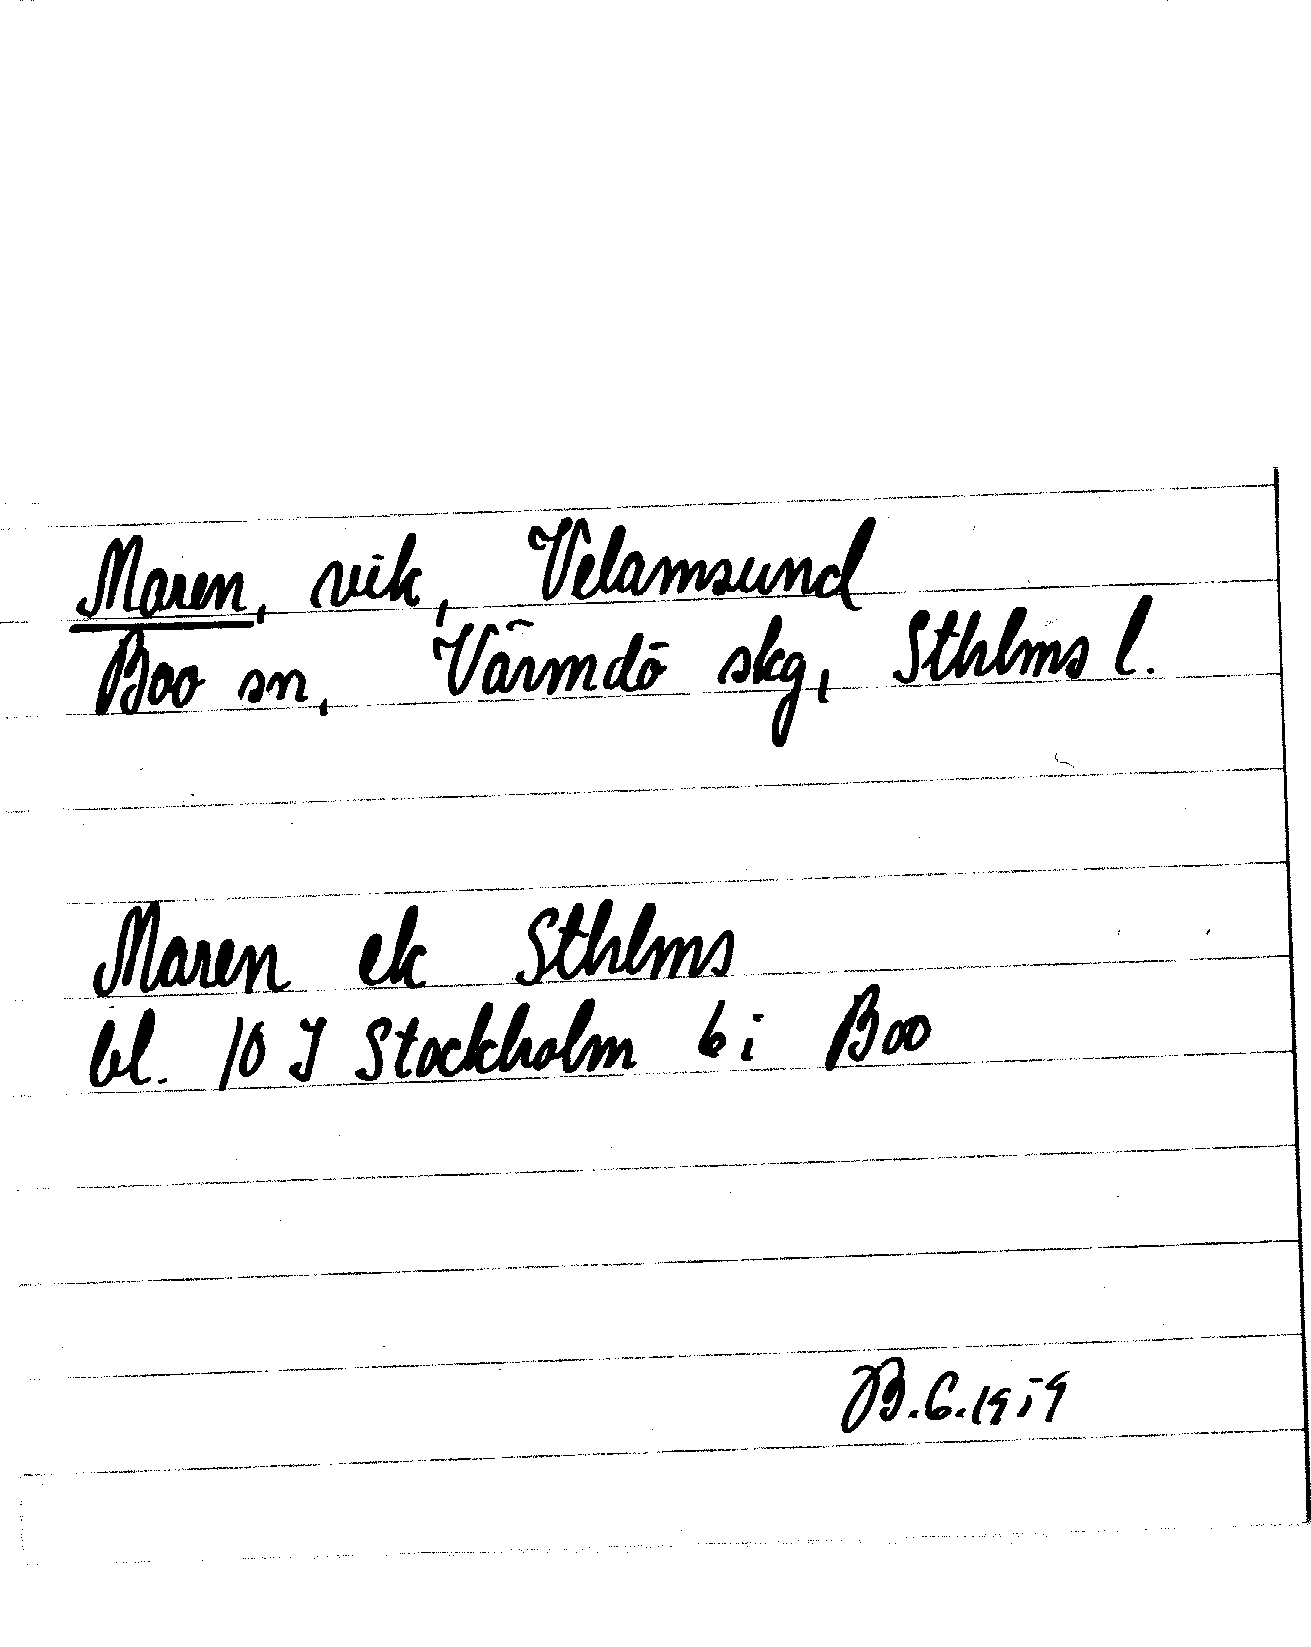 Maren, vik, Velamsund
Boo sn, Värmdö skg, Sthlms l.
Maren ek Sthlms
bl. 10 J Stockholm 6 i Boo
B.C.1959